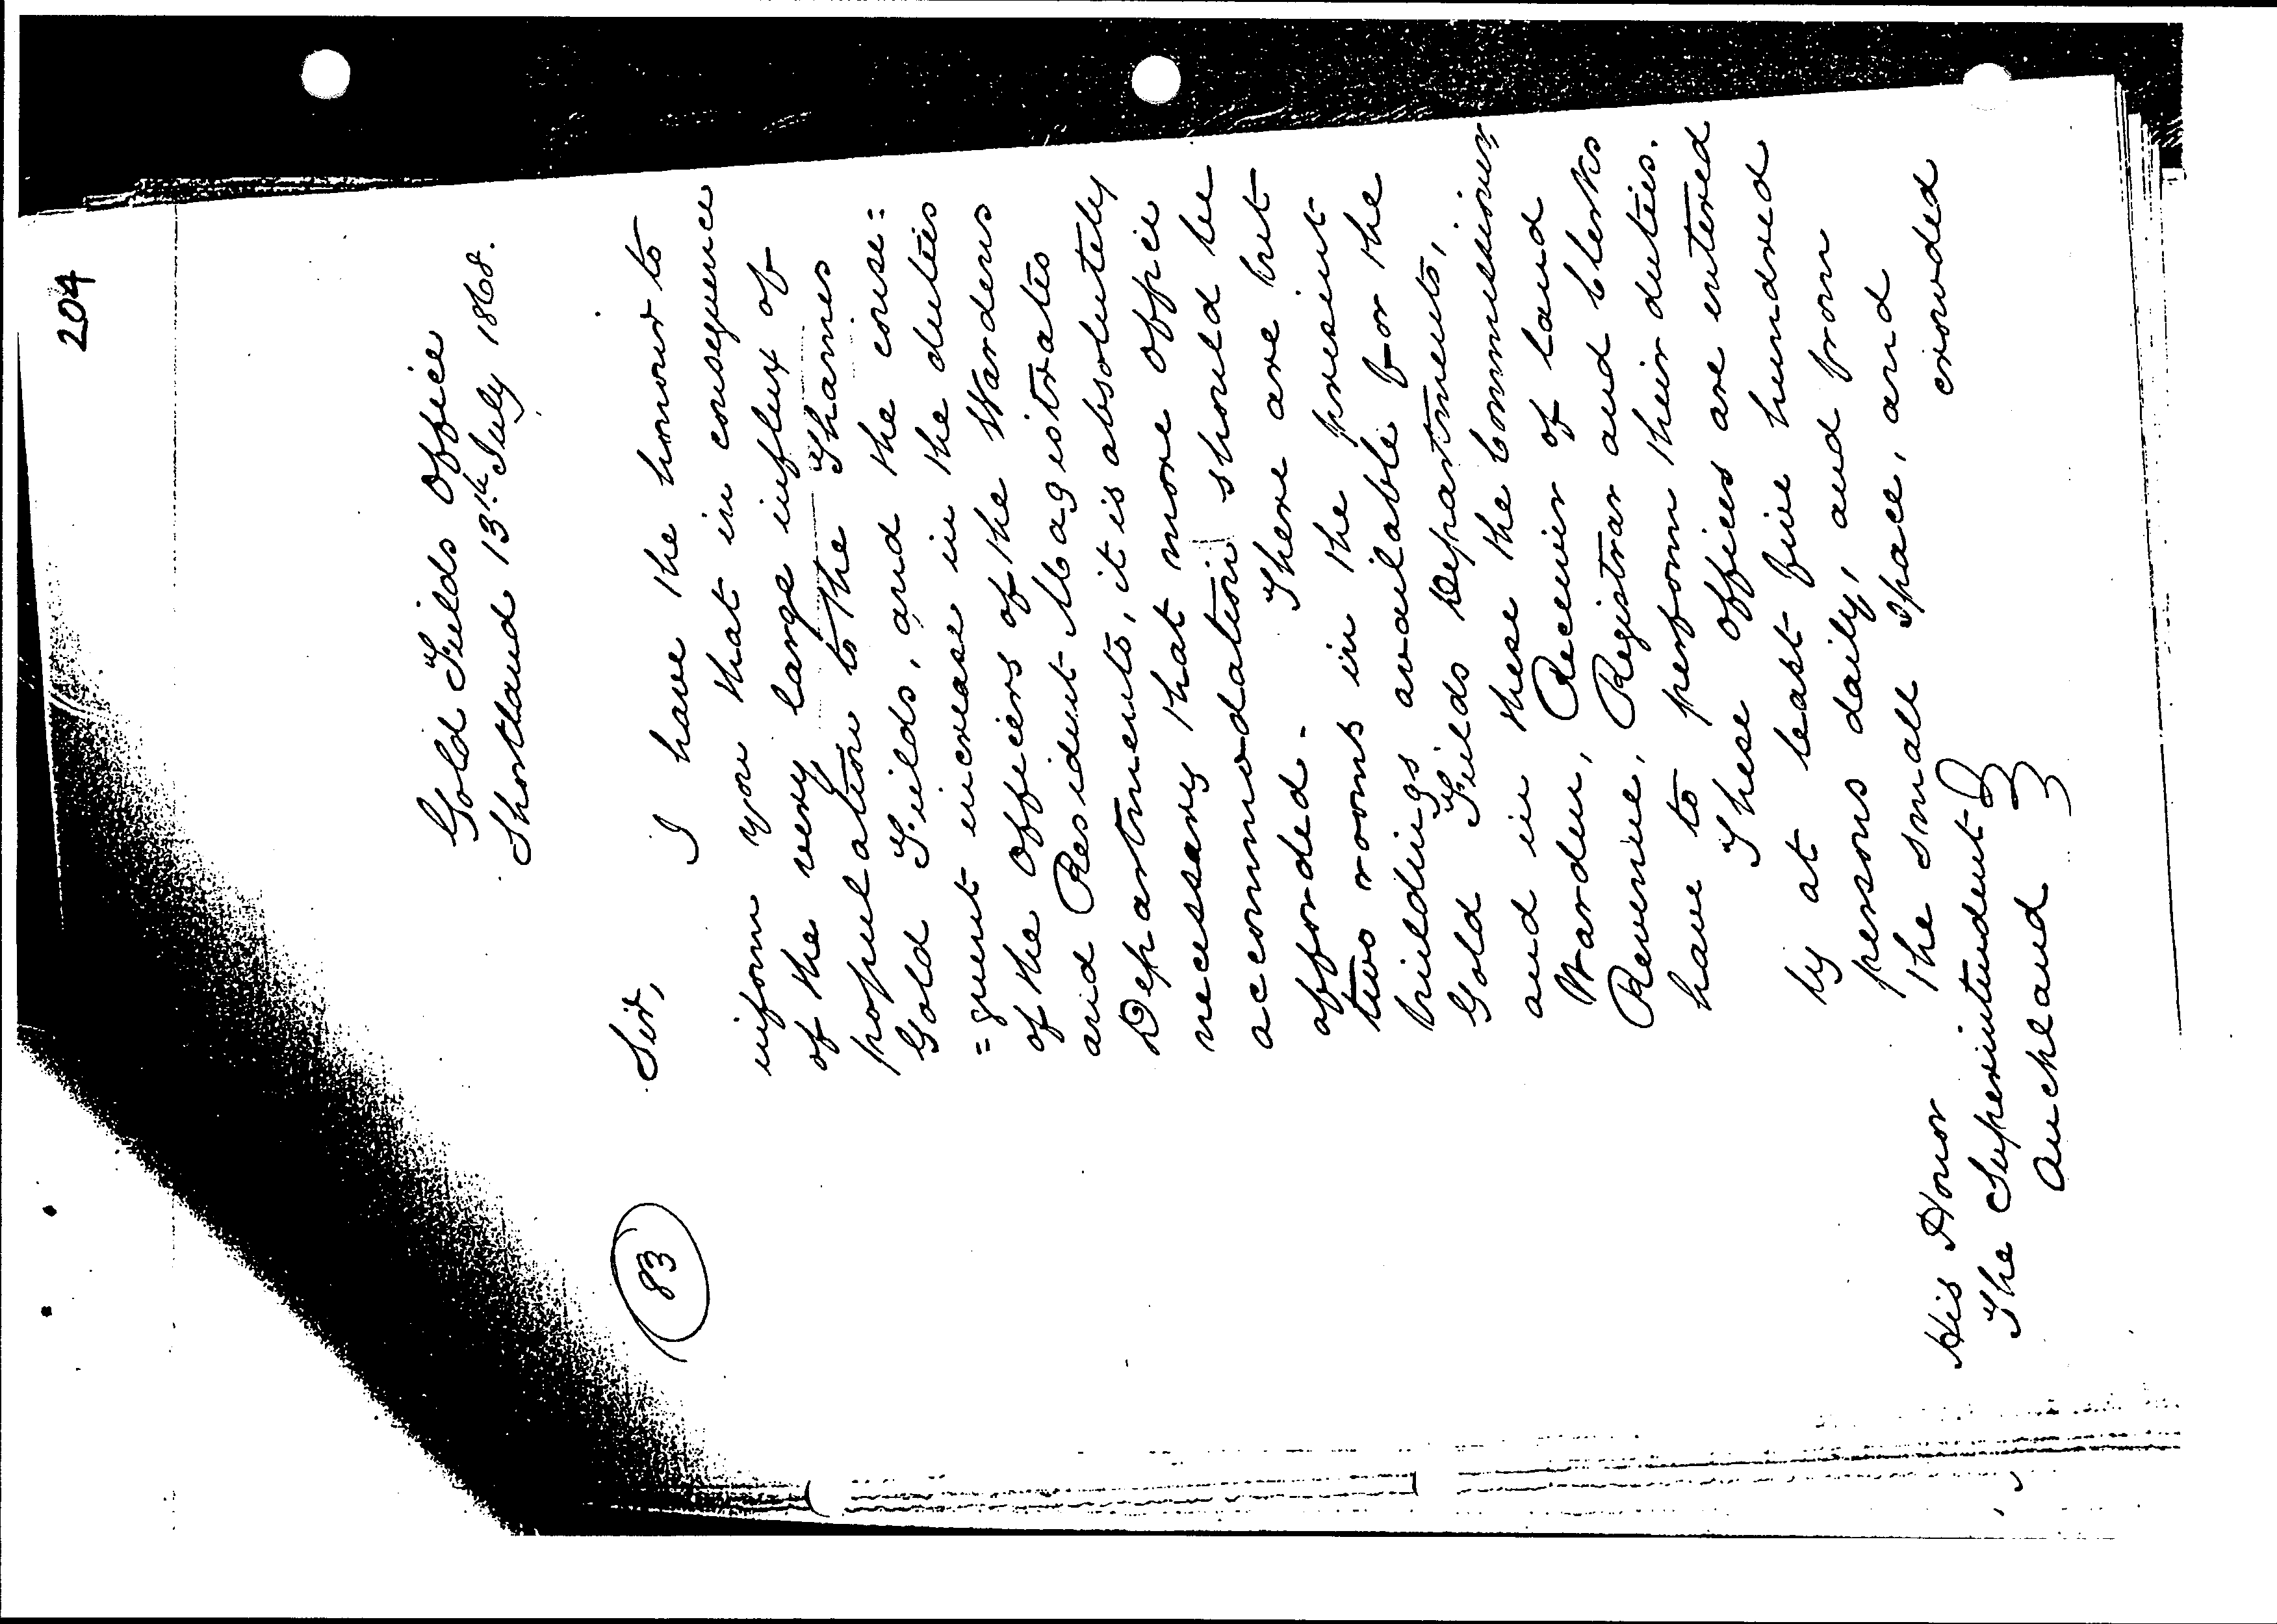 204
Gold Fields Office
Shortland 13th July 1868.
83
Sir,
I have the honour to
inform you that in consequence
of the very large influx of
population to the Thames
Gold Fields, and the conse=
=quent increase in the duties
of the Officers of the Wardens
and Resident Magistrates
Departments, it is absolutely
necessary that more office
accommodation should be
afforded. There are but
two rooms in the present
buildings available for the
Gold Fields Departments,
and in these the Commissioner
Warden, Receiver of Land
Revenue, Registrar and Clerks
have to perform their duties.
These offices are entered
by at least five hundred
persons daily, and from
the small space, and
crowded
His Honor
The Superintendent
Auckland